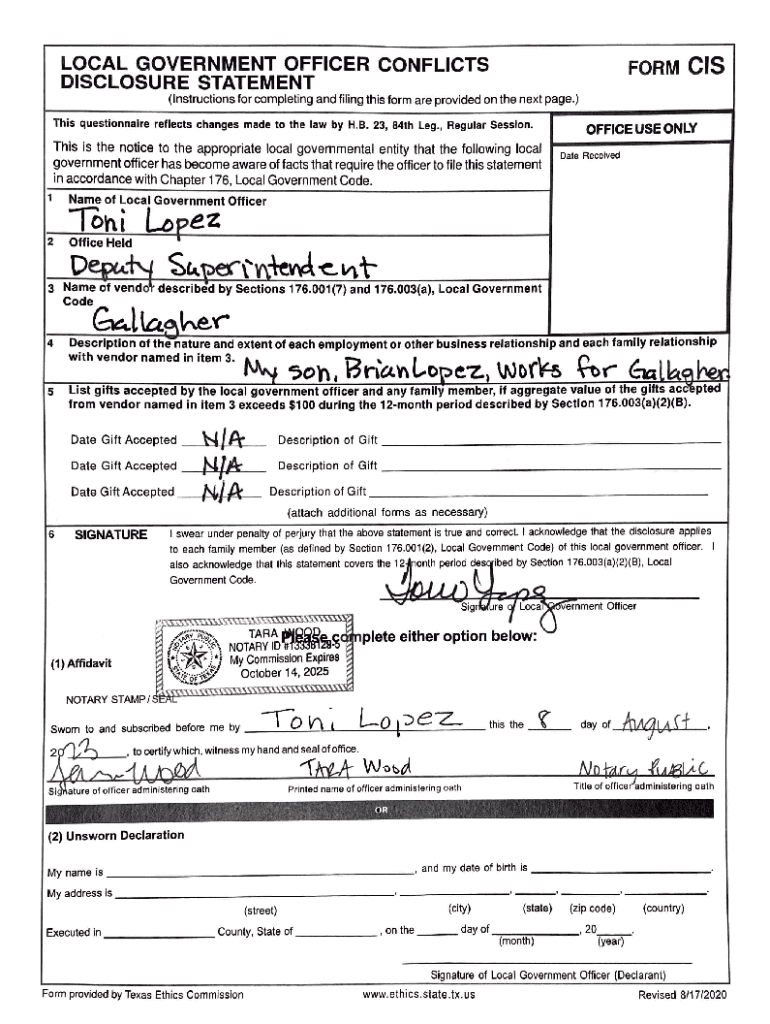 LOCAL GOVERNMENT OFFICER CONFLICTS
DISCLOSURE STATEMENT
FORM CIS
(Instructions for completing and filing this form are provided on the next page.)
This questionnaire reflects changes made to the law by H.B. 23, 84th Leg., Regular Session.
OFFICE USE ONLY
This is the notice to the appropriate local governmental entity that the following local
government officer has become aware of facts that require the officer to file this statement
in accordance with Chapter 176, Local Government Code.
Date Received
1 Name of Local Government Officer
Toni Lopez
2 Office Held
Deputy Superintendent
3 Name of vendor described by Sections 176.001(7) and 176.003(a), Local Government
Code
Gallagher
4 Description of the nature and extent of each employment or other business relationship and each family relationship
with vendor named in item 3.
My son, Brian Lopez, works for Gallagher
5 List gifts accepted by the local government officer and any family member, if aggregate value of the gifts accepted
from vendor named in item 3 exceeds $100 during the 12-month period described by Section 176.003(a)(2)(B).
Date Gift Accepted N/A Description of Gift
Date Gift Accepted N/A Description of Gift
Date Gift Accepted N/A Description of Gift
(attach additional forms as necessary)
6 SIGNATURE I swear under penalty of perjury that the above statement is true and correct. I acknowledge that the disclosure applies
to each family member (as defined by Section 176.001(2), Local Government Code) of this local government officer. I
also acknowledge that this statement covers the 12-month period described by Section 176.003(a)(2)(B), Local
Government Code.
Signature of Local Government Officer
TARA WOOD
Please complete either option below:
NOTARY ID #13338129-5
My Commission Expires
October 14, 2025
NOTARY PUBLIC
STATE OF TEXAS
(1) Affidavit
NOTARY STAMP / SEAL
Sworn to and subscribed before me by Toni Lopez this the 8 day of August,
2023, to certify which, witness my hand and seal of office.
Tara Wood TARA Wood Notary Public
Signature of officer administering oath Printed name of officer administering oath Title of officer administering oath
OR
(2) Unsworn Declaration
My name is , and my date of birth is .
My address is , , , , .
(street) (city) (state) (zip code) (country)
Executed in County, State of , on the day of , 20 .
(month) (year)
Signature of Local Government Officer (Declarant)
Form provided by Texas Ethics Commission www.ethics.state.tx.us Revised 8/17/2020